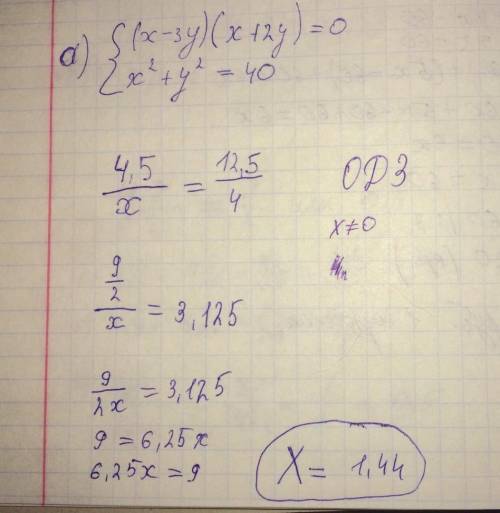 а) {(x-3y)(x+2y)=0
x²+y²=40
4,5/x = 12,5/4 ОДЗ
x≠0
9/2/x = 3,125
9/2x = 3,125
9 = 6,25x
6,25x = 9
X = 1,44